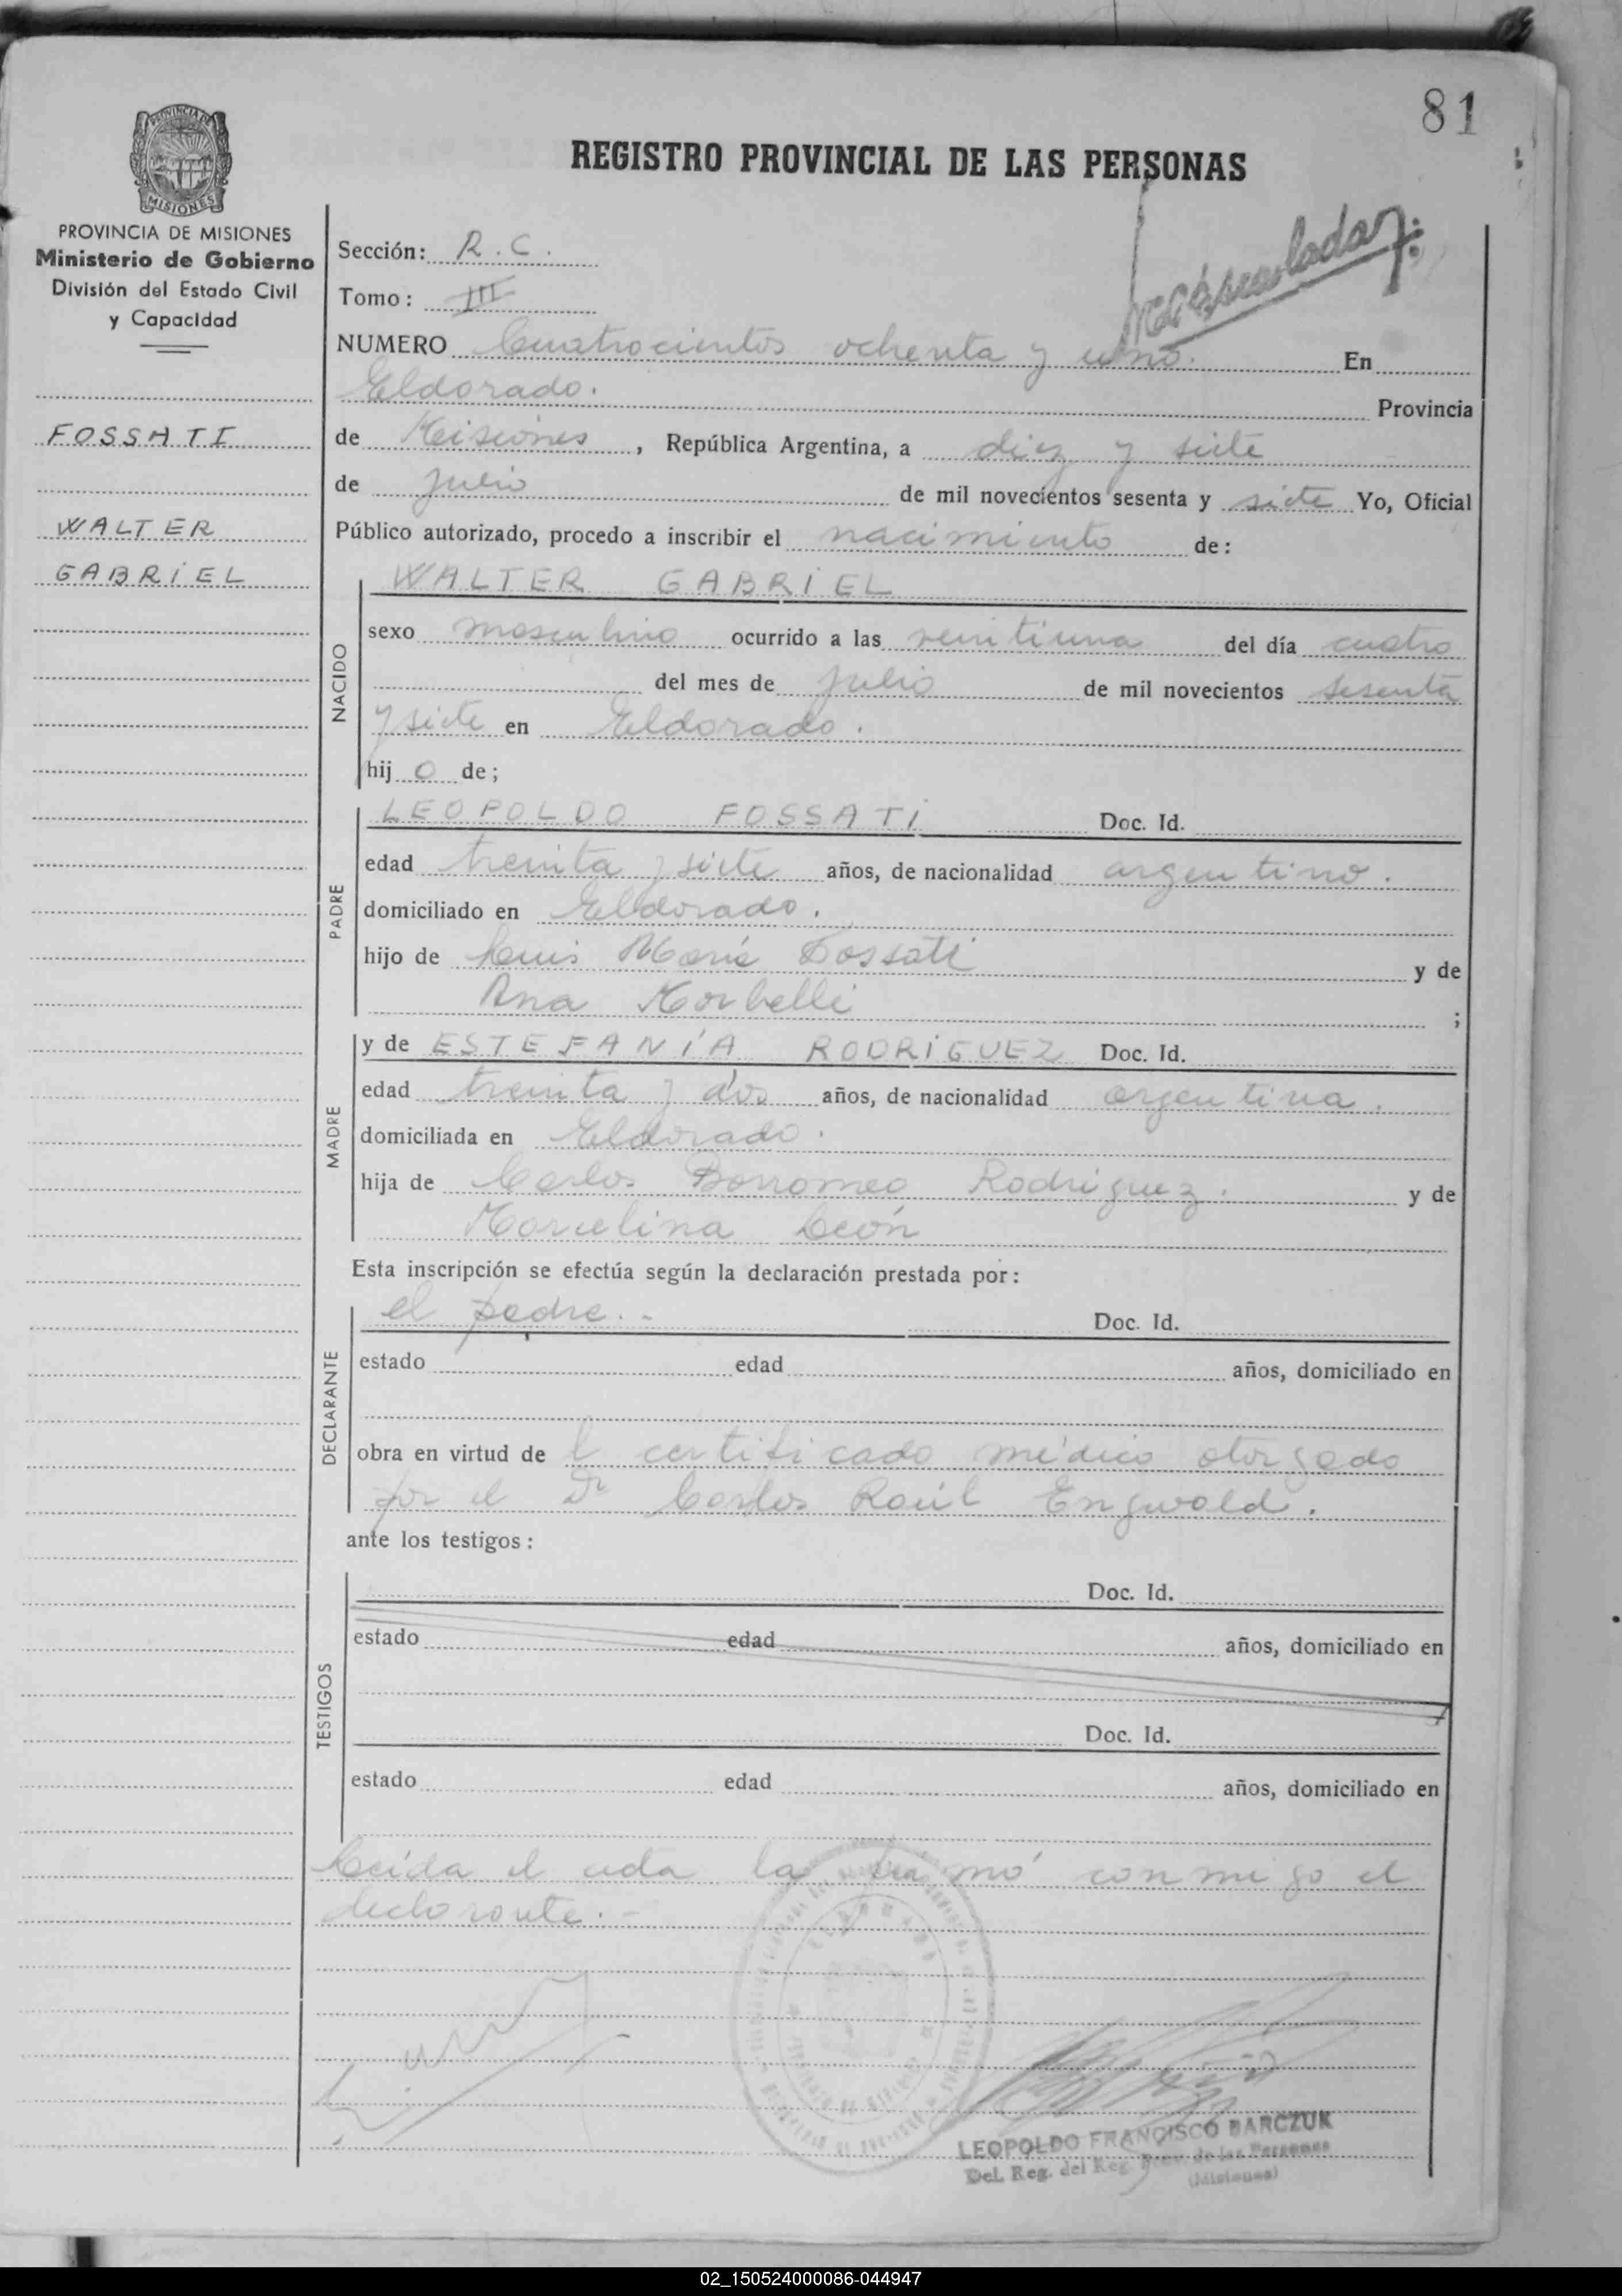 81
REGISTRO PROVINCIAL DE LAS PERSONAS
MISIONES
PROVINCIA DE MISIONES
Ministerio de Gobierno
División del Estado Civil
y Capacidad
FOSSATI
WALTER
GABRIEL
Sección: R. C.
Tomo: III
NUMERO Cuatrocientos ochenta y uno. En
Eldorado. Provincia
de Misiones, República Argentina, a diez y siete
de julio de mil novecientos sesenta y siete Yo, Oficial
Público autorizado, procedo a inscribir el nacimiento de:
NACIDO
WALTER GABRIEL
sexo masculino ocurrido a las veintiuna del día cuatro
del mes de julio de mil novecientos sesenta
y siete en Eldorado.
hijo de;
PADRE
LEOPOLDO FOSSATI Doc. Id.
edad treinta y siete años, de nacionalidad argentino.
domiciliado en Eldorado.
hijo de Luis María Fossati y de
Ana Morbelli ;
MADRE
y de ESTEFANÍA RODRIGUEZ Doc. Id.
edad treinta y dos años, de nacionalidad argentina.
domiciliada en Eldorado.
hija de Carlos Borromeo Rodriguez. y de
Marcelina León
Esta inscripción se efectúa según la declaración prestada por:
DECLARANTE
el padre. - Doc. Id.
estado edad años, domiciliado en
obra en virtud de l certificado médico otorgado
por el Dr Carlos Raúl Engwald.
ante los testigos:
TESTIGOS
Doc. Id.
estado edad años, domiciliado en
Doc. Id.
estado edad años, domiciliado en
Leída el acta la firmó conmigo el
declarante. -
LEOPOLDO FRANCISCO BARCZUK
Del. Reg. del Reg. Prov. de las Personas
(Misiones)
02_150524000086-044947